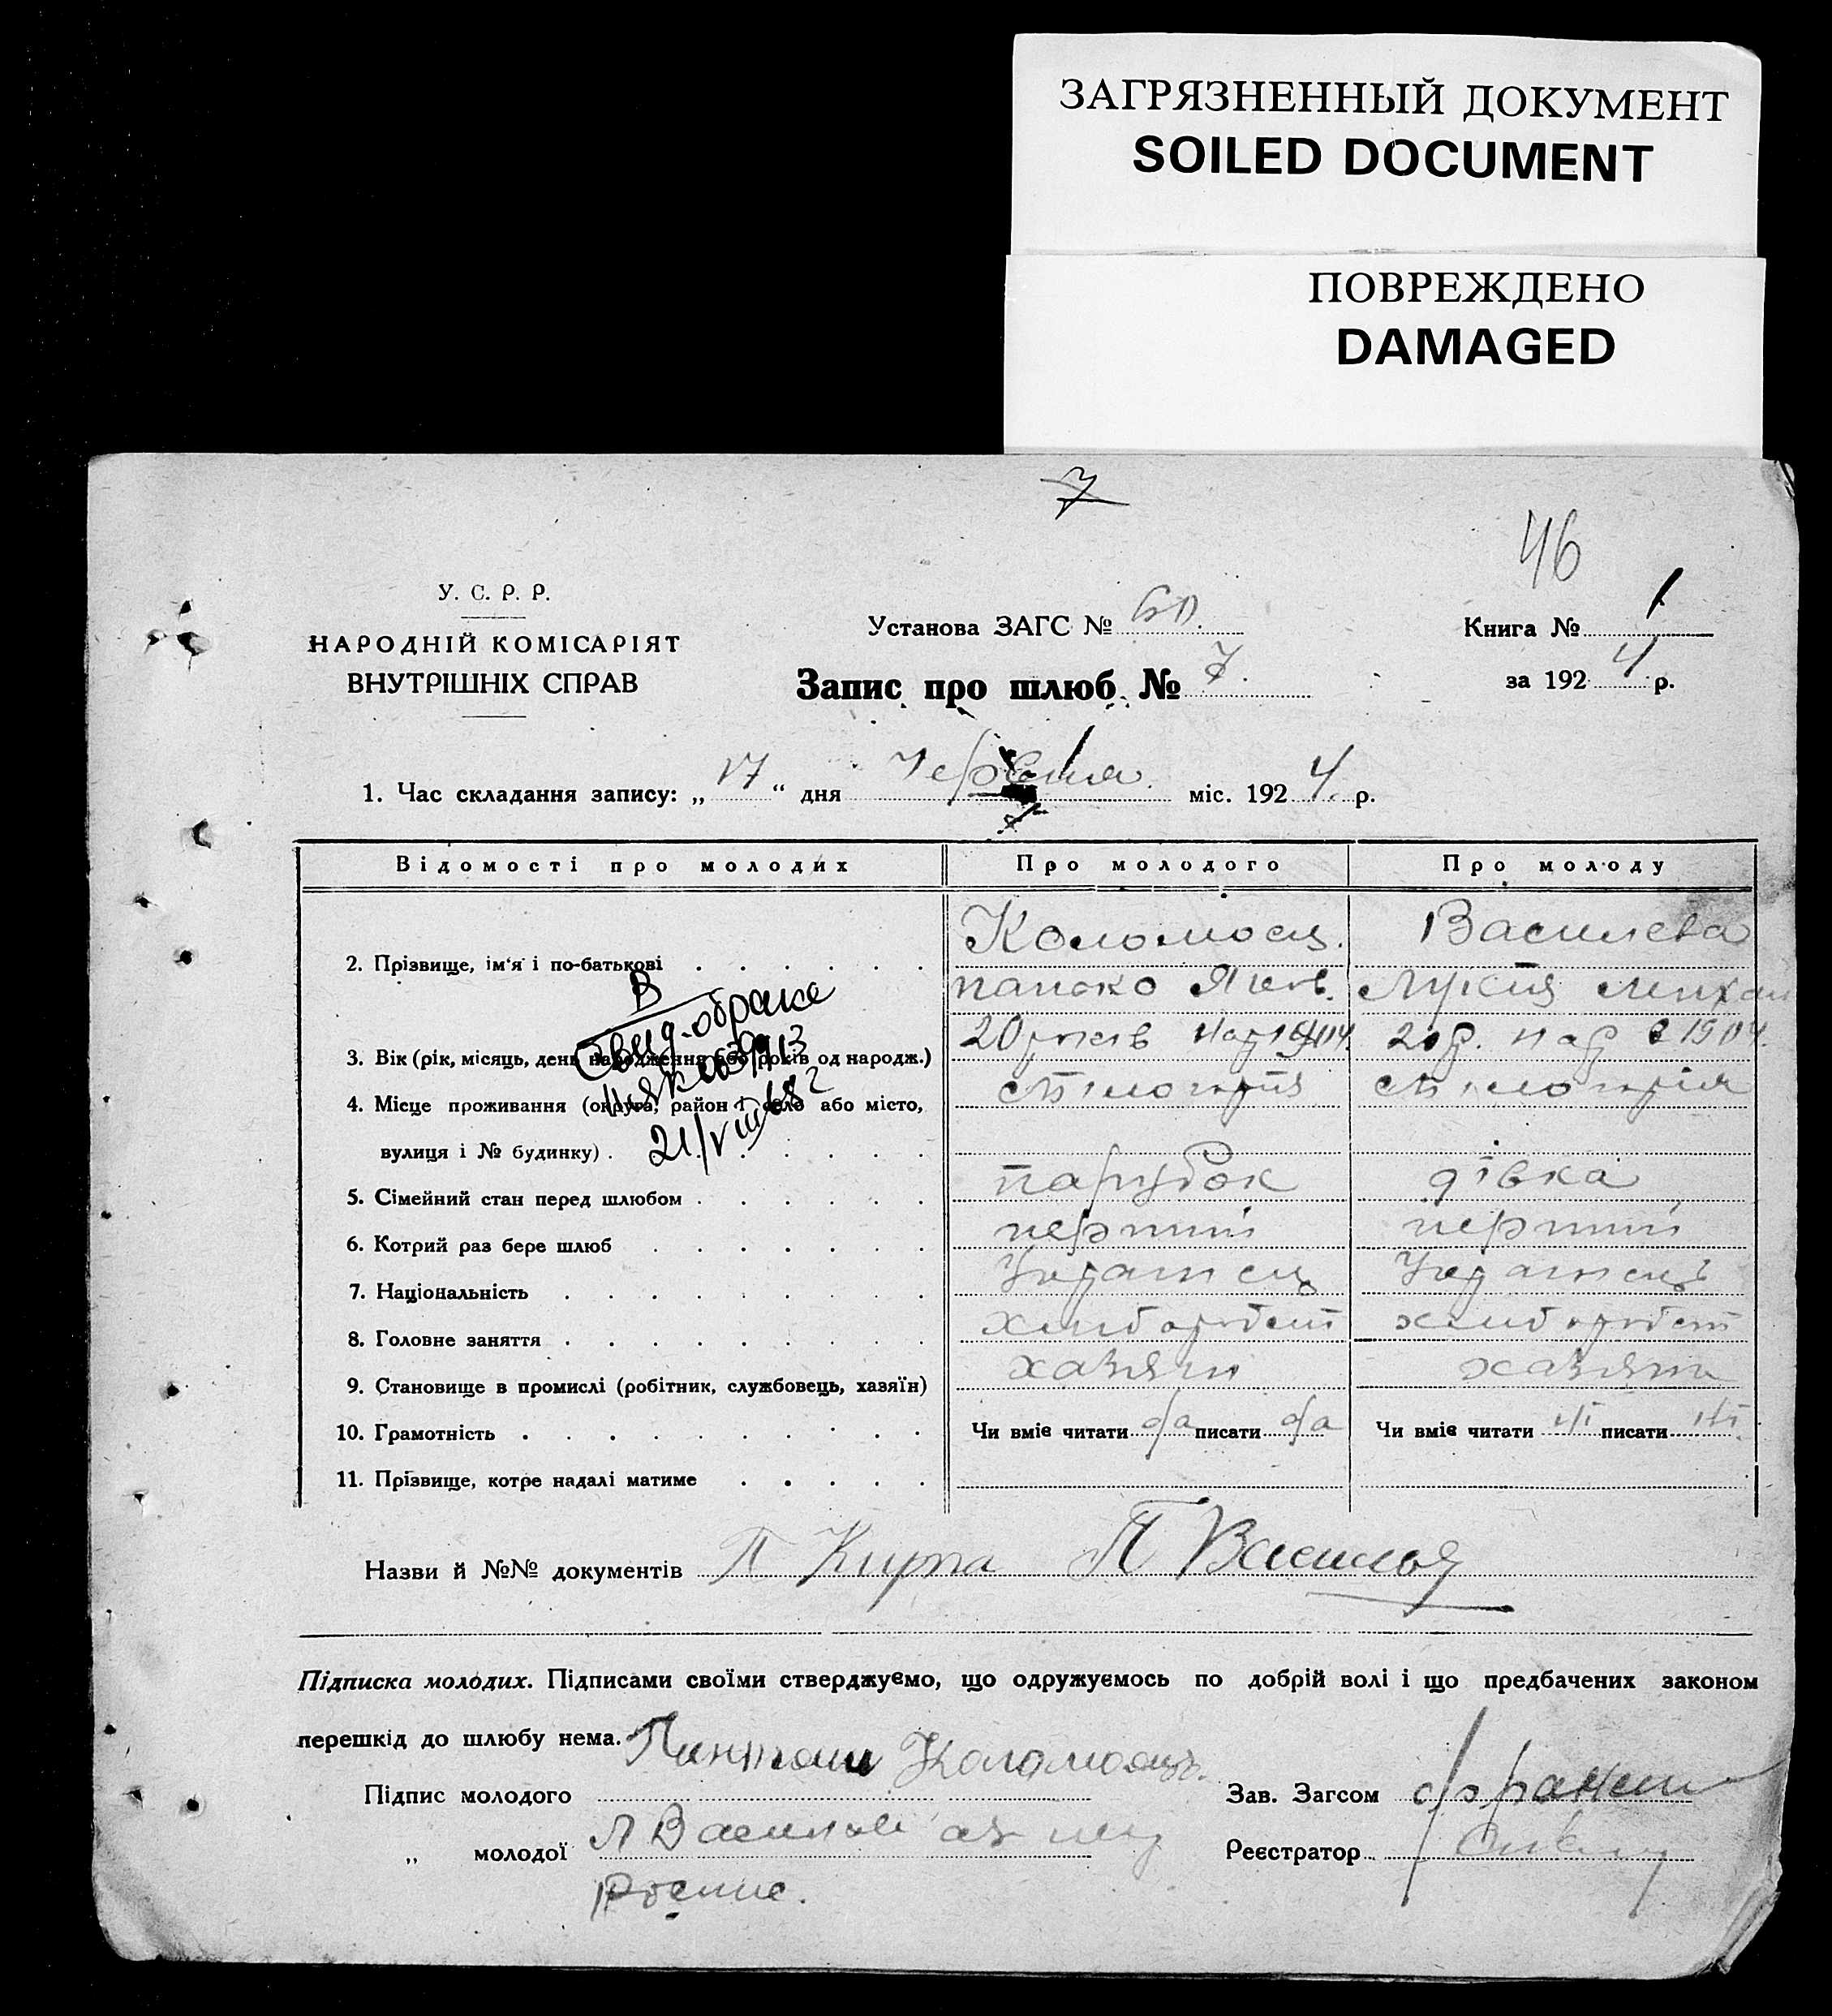 ЗАГРЯЗНЕННЫЙ ДОКУМЕНТ
SOILED DOCUMENT
ПОВРЕЖДЕНО
DAMAGED
7
46
У. С. Р. Р.
НАРОДНІЙ КОМІСАРІЯТ
ВНУТРІШНІХ СПРАВ
Установа ЗАГС №
Запис про шлюб № 7.
Книга № 1
за 1924 р.
1. Час складання запису: „17“ дня Червня міс. 1924. р.
Відомості про молодих Про молодого Про молоду
Коломоец. Василєва
2. Прізвище, ім‘я і по-батькові
20 років нар 1904. 20 р. нар в 1904.
3. Вік (рік, місяць, день народження або років од народж.)
4. Місце проживання (округа, район і село або місто,
вулиця і № будинку)
В
Свид. о браке
21/VIII 68
5. Сімейний стан перед шлюбом парубок дівка
6. Котрий раз бере шлюб перший перший
7. Національність Украинец Украинець
8. Головне заняття хлибороб хлибороб
9. Становище в промислі (робітник, службовець, хазяїн) хазяин хазяин
10. Грамотність Чи вміє читати да писати да Чи вміє читати ні писати ні
11. Прізвище, котре надалі матиме
Назви й №№ документів П Кирпа П
Підписка молодих. Підписами своїми стверджуємо, що одружуємось по добрій волі і що предбачених законом
перешкід до шлюбу нема.
Підпис молодого Коломоець
Зав. Загсом
„ молодої Л
Реєстратор